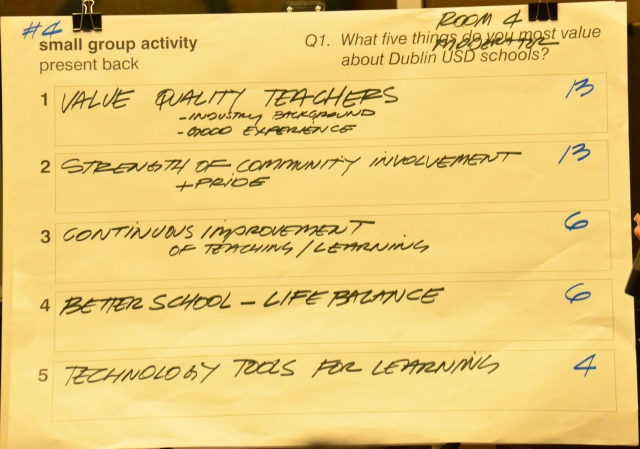 #4
ROOM 4
MODERATOR
small group activity
present back
Q1. What five things do you most value
about Dublin USD schools?
1 VALUE QUALITY TEACHERS 13
-INDUSTRY BACKGROUND
-GOOD EXPERIENCE
2 STRENGTH OF COMMUNITY INVOLVEMENT 13
+PRIDE
3 CONTINUOUS IMPROVEMENT 6
OF TEACHING/LEARNING
4 BETTER SCHOOL - LIFE BALANCE 6
5 TECHNOLOGY TOOLS FOR LEARNING 4